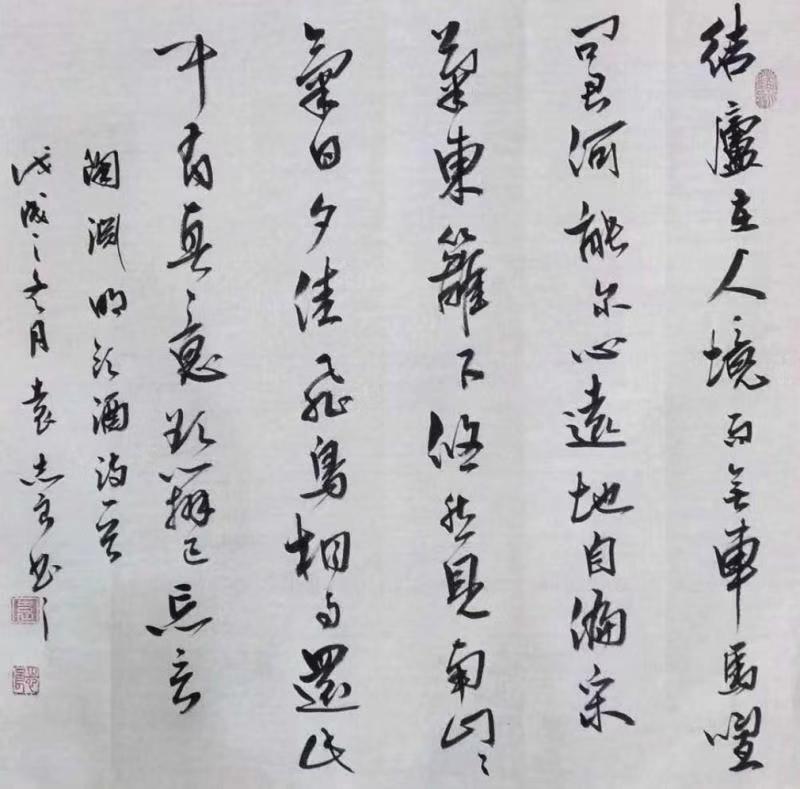 结庐在人境而无车马喧
问君何能尔心远地自偏采
菊东篱下悠然见南山山
气日夕佳飞鸟相与还此
中有真意欲辨已忘言
陶渊明饮酒诗一首
戊戌之冬月袁志良书